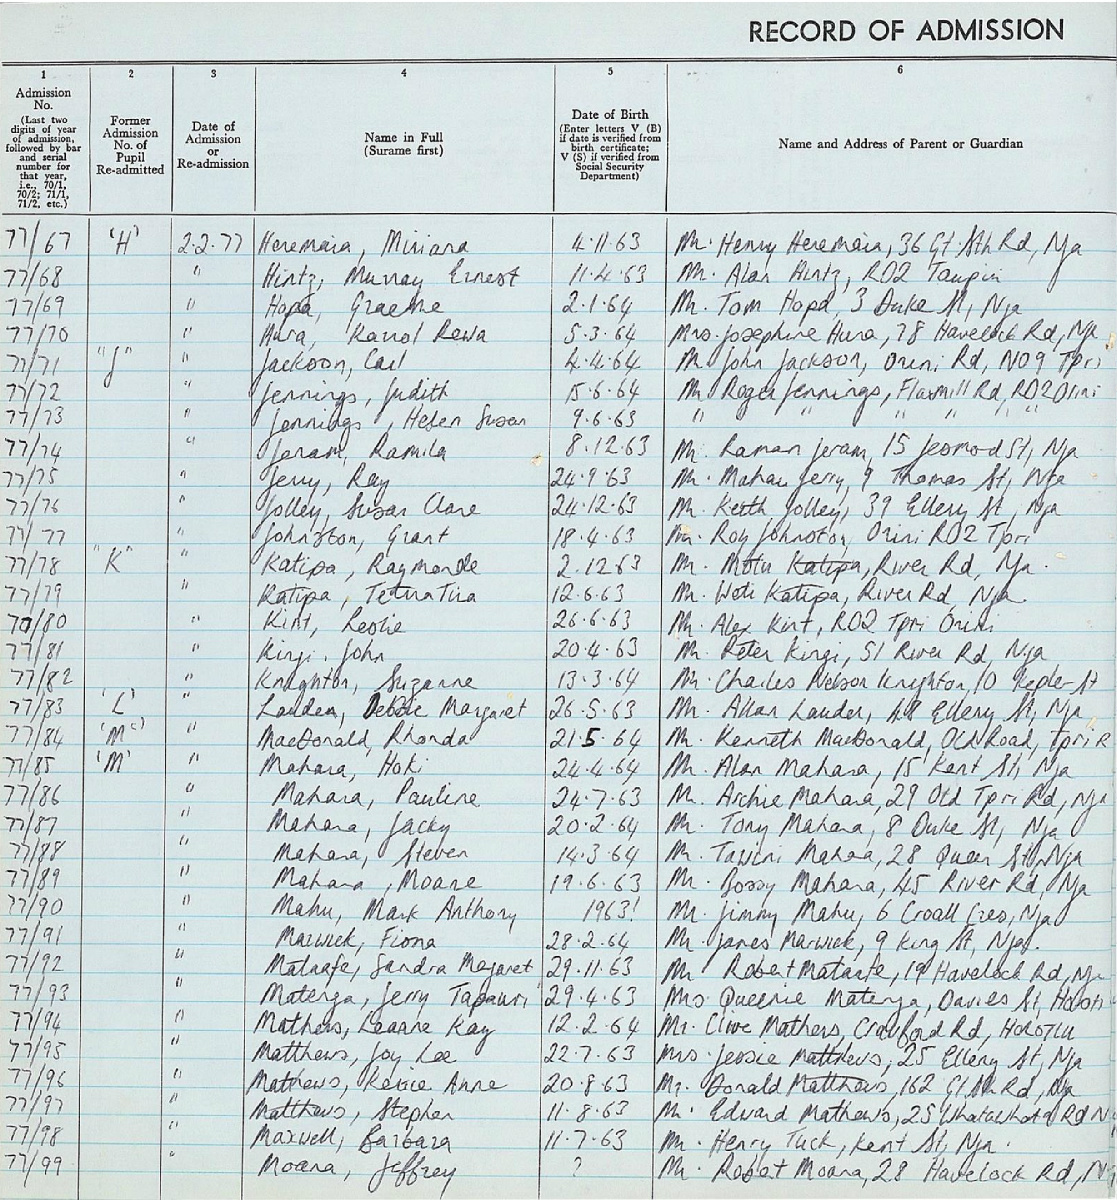 RECORD OF ADMISSION
1 2 3 4 5 6
Admission No. (Last two digits of year of admission, followed by bar and serial number for that year, i.e., 70/1, 70/2; 71/1, 71/2, etc.) Former Admission No. of Pupil Re-admitted Date of Admission or Re-admission Name in Full (Surame first) Date of Birth (Enter letters V (B) if date is verified from birth certificate; V (S) if verified from Social Security Department) Name and Address of Parent or Guardian
77/67 'H' 2.2.77 Heremaia, Miriana 4.11.63 Mr. Henry Heremaia, 36 Gt. Sth Rd, Nga
77/68 " Hintz, Murray Ernest 11.4.63 Mr. Alan Hintz, RD2 Taupiri
77/69 " Hopa, Graeme 2.1.64 Mr. Tom Hopa, 3 Duke St, Nga
77/70 " Hura, Karrol Rewa 5.3.64 Mrs. Josephine Hura, 78 Havelock Rd, Nga
77/71 "J" " Jackson, Carl 4.4.64 Mr John Jackson, Orini Rd, NO9 Tpri
77/72 " Jennings, Judith 15.6.64 Mr Roger Jennings, Flaxmill Rd, RD2 Orini
77/73 " Jennings, Helen Susan 9.6.63 " " " " "
77/74 " Jeram, Ramila 8.12.63 Mr. Raman Jeram, 15 Jesmond St, Nga
77/75 " Jerry, Ray 24.9.63 Mr. Mahau Jerry, 9 Thomas St, Nga
77/76 " Jolley, Susan Clare 24.12.63 Mr. Keith Jolley, 39 Ellery St, Nga
77/77 " Johnston, Grant 18.4.63 Mr. Roy Johnston, Orini RD2 Tpri
77/78 "K" " Katipa, Raymonde 2.12.63 Mr. Motu Katipa, River Rd, Nga.
77/79 " Katipa, 12.6.63 Mr. Woti Katipa, River Rd, Nga
70/80 " Kint, Leslie 26.6.63 Mr. Alex Kint, RD2 Tpri Orini
77/81 " Kingi. John 20.4.63 Mr. Peter Kingi, 51 River Rd, Nga
77/82 " Knighton, Suzanne 13.3.64 Mr. Charles Nelson Knighton, 10 Kepler St
77/83 'L' " Lauder, Debbie Margaret 26.5.63 Mr. Allan Lauder, 48 Ellery St, Nga
77/84 'Mc' " MacDonald, Rhonda 21.5.64 Mr. Kenneth MacDonald, Old Road, Tpri R
77/85 'M' " Mahara, Hoki 24.4.64 Mr. Alan Mahara, 15 Kent St, Nga
77/86 " Mahara, Pauline 24.7.63 Mr. Archie Mahara, 29 Old Tpri Rd, Nga
77/87 " Mahara, Jacky 20.2.64 Mr. Tony Mahara, 8 Duke St, Nga
77/88 " Mahara, Steven 14.3.64 Mr. Tawini Mahara, 28 Queen St, Nga
77/89 " Mahara, Moane 19.6.63 Mr. Bossy Mahara, 45 River Rd, Nga
77/90 " Mahu, Mark Anthony 1963! Mr. Jimmy Mahu, 6 Croall Cres, Nga
77/91 " Marwick, Fiona 28.2.64 Mr. James Marwick, 9 King St, Nga.
77/92 " Mataafe, Sandra Magaret 29.11.63 Mr Robert Mataafe, 19 Havelock Rd, Nga
77/93 " Matenga, Jerry Tapauri 29.4.63 Mrs Queenie Matenga, Davies St,
77/94 " Mathers, Leanne Kay 12.2.64 Mr. Clive Mathers, Crawford Rd, Horotiu
77/95 " Matthews, Joy Lee 22.7.63 Mrs. Jessie Matthews, 25 Ellery St, Nga
77/96 " Mathews, Kerrie Anne 20.8.63 Mr. Donald Matthews, 162 Gt Sth Rd, Nga
77/97 " Matthews, Stephen 11.8.63 Mr Edward Mathews, 25 Whatawhata Rd N
77/98 " Maxwell, Barbara 11.7.63 Mr. Henry Tuck, Kent St, Nga.
77/99 " Moana, Jeffrey ? Mr. Robert Moana, 28 Havelock Rd, N